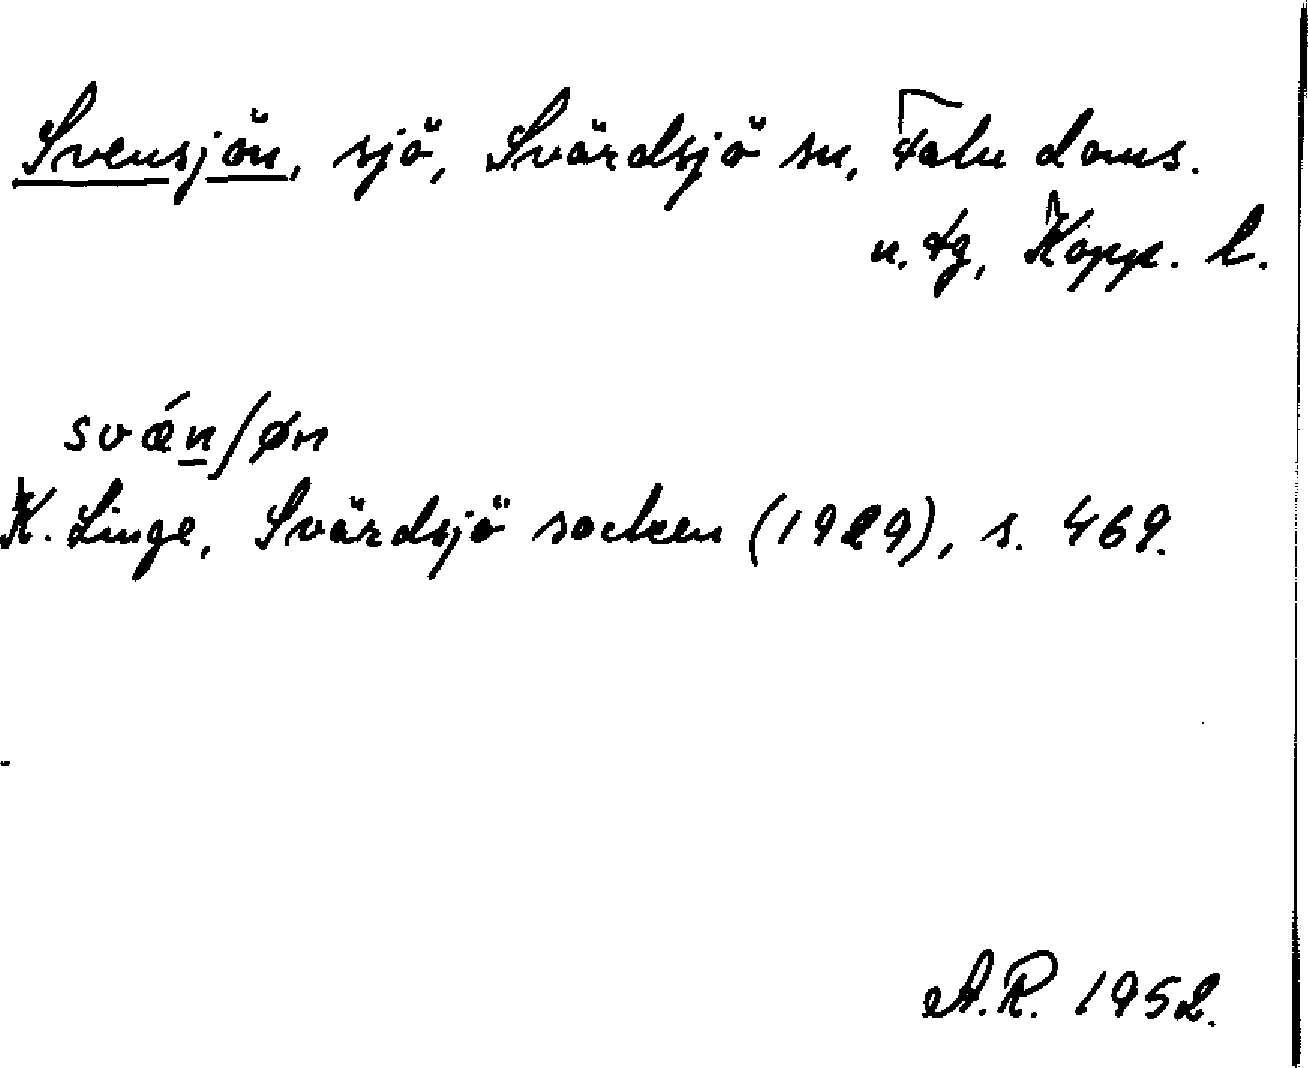 Svensjön, sjö, Svärdsjö sn, Falu doms.
n. tg, Kopp. l.
svǽn̲ʃøn
K. Linge, Svärdsjö socken (1929), s. 469.
A.R. 1952.